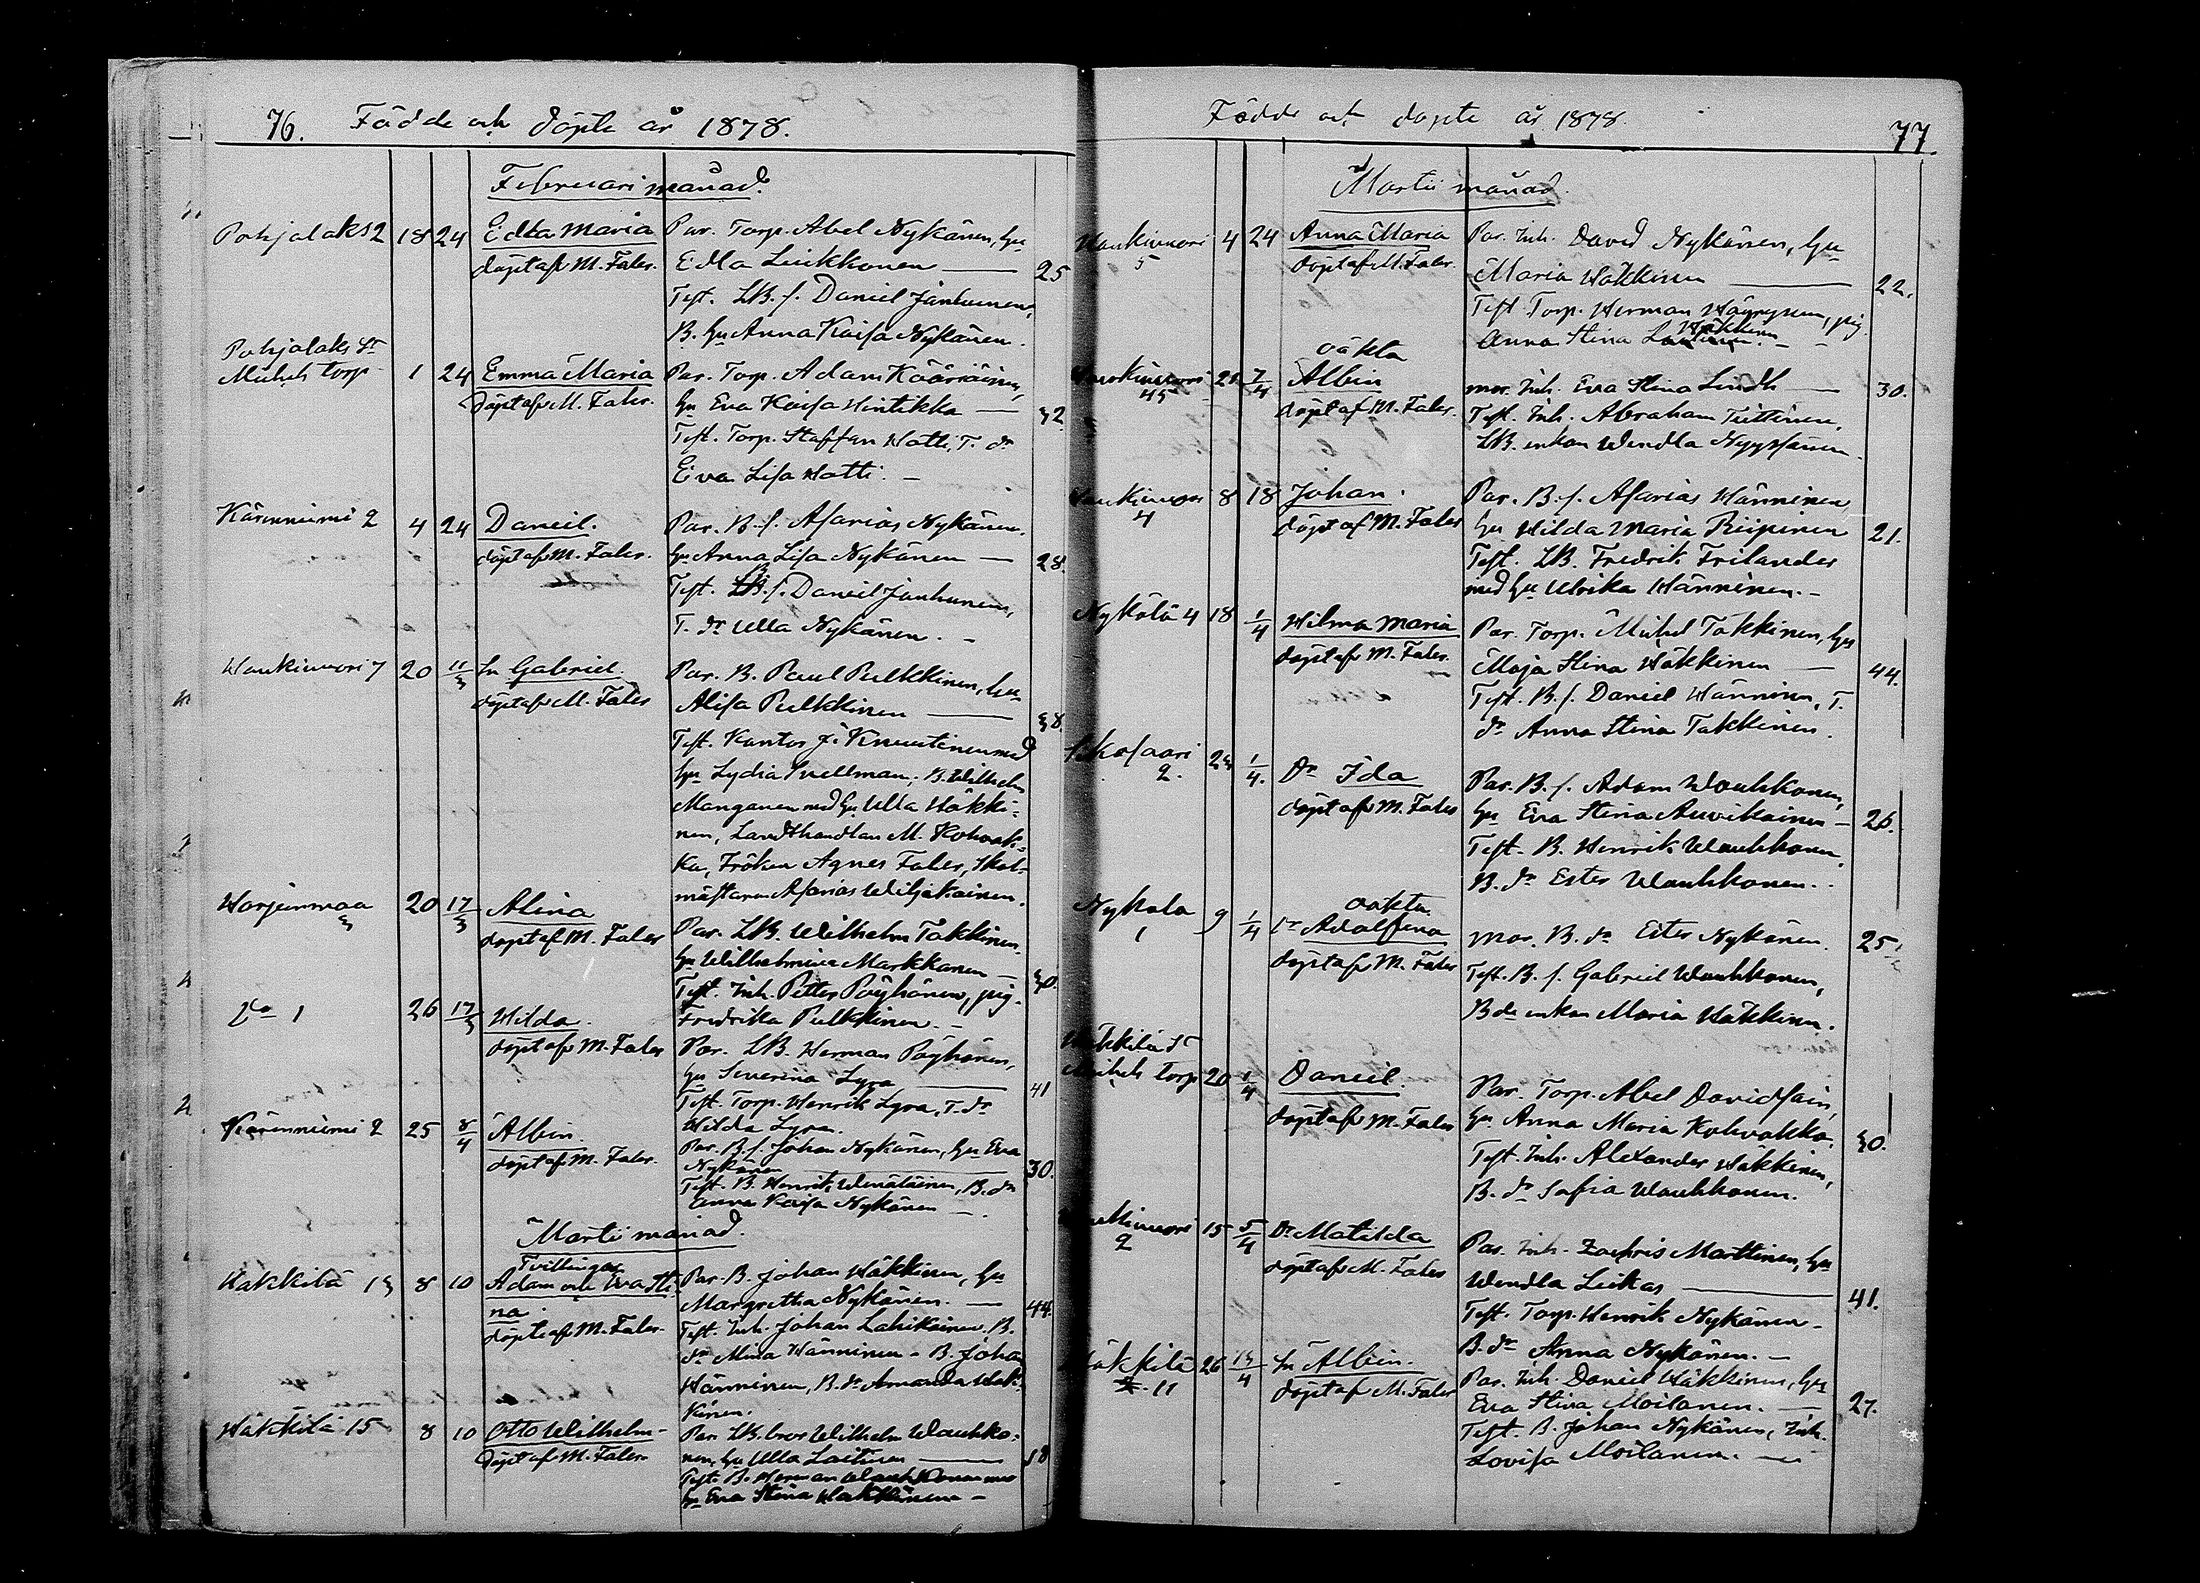 76. Födde och döpte år 1878.
Februari månad.
Pohjolaks 2 18 24 Edla Maria Par. Torp. Abel Nykänen, hu
döpt af M. Faler. Edla Liukkonen — 25
Test. LB. s. Daniel Janhunen,
B. hu Anna Kaisa Nykänen.
Pohjolaks St
Michels torp. 1 24 Emma Maria Par. Torp. Adam Kääriäinen,
döpt af M. Faler. hu Eva Kaisa Hintikka — 32
Test. Torp. Staffan Hatti, T. dr
Eva Lisa Hatti. —
Kärenniemi 2 4 24 Daniel. Par. B. s. Asarias Nykänen.
döpt af M. Faler. hu Anna Lisa Nykänen — 28.
Test. LB. s. Daniel Janhunen,
T. dr Ulla Nykänen. —
Haukivuori 7 20 11/3 Sn Gabriel Par. B. Paul Pulkkinen, hu
döpt af M. Faler Alisa Pulkkinen — 38.
Test. Kantor J. Knuutinen med
hu Lydia Snellman; B. Wilhelm
Manganen med hu Ulla Häkki-
nen, Landthandlan M. Kohvak-
ka, Fröken Agnes Faler, Skol-
mästaren Asarias Wiljakainen.
Harjunmaa 3 20 17/3 Alina Par. LB. Wilhelm Takkinen,
döpt af M. Faler hu Wilhelmina Markkanen — 30.
Test. Inh. Petter Pöyhönen, pig.
Fredrika Pulkkinen. —
Do 1 26 17/3 Hilda. Par. LB. Herman Pöyhönen,
döpt af M. Faler hu Severina Lyra — 41
Test. Torp. Henrik Lyra, T. dr
Hilda Lyra.
Kärenniemi 2 25 8/4 Albin. Par. B. s. Johan Nykänen, hu Eva
döpt af M. Faler. Nykänen — 30.
Test. B. Henrik Wenäläinen, B. dr
Anna Kaisa Nykänen —
Martii månad.
Tvillingar
Häkkilä 13 8 10 Adam och Eva Sti- Par. B. Johan Häkkinen, hu
na. Margretha Nykänen. — 44.
döpte af M. Faler. Test. Inh. Johan Lahikainen, B.
dr Mina Hänninen - B. Johan
Hänninen, B. dr Amanda Häk-
kinen.
Häkkilä 15 8 10 Otto Wilhelm - Par. LB. bror Wilhelm Wauhko-
döpt af M. Faler nen, hu Ulla Laitinen — 18
Test. B. Herman Wauhkonen med
hu Eva Stina Häkkinen —
Födde och döpte år 1878. 77.
Martii månad.
Haukivuori 5 4 24 Anna Maria Par. Inh. David Nykänen, hu
döpt af M. Faler. Maria Häkkinen — 22.
Test Torp. Herman Häyrynen, pig.
Häkkinen
Anna Stina —
oäkta
Haukivuori 45 21 7/4 Albin mor. Inh. Eva Stina Lindh — 30.
döpt af M. Faler. Test. Inh. Abraham Tiittinen,
LB. enkan Wendla Nyyssönen.
Haukivuori 4 8 18 Johan. Par. B. s. Asarias Hänninen,
döpt af M. Faler hu Hilda Maria Piipinen 21.
Test. LB. Fredrik Frilander
med hu Ulrika Hänninen. —
Nykälä 4 18 1/4 Hilma Maria Par. Torp. Michel Takkinen, hu
döpt af M. Faler. Maja Stina Häkkinen — 44.
Test. B. s. Daniel Hänninen, T.
dr Anna Stina Takkinen.
2. 23 1/4. Dr Ida Par. B. s. Adam Wauhkonen,
döpt af M. Faler hu Eva Stina Auvikainen — 26.
Test. B. Henrik Wauhkonen,
B. dr Ester Wauhkonen..
oäkta
Nykälä 1 9 1/4 Dr Adolfina Mor. B. dr Ester Nykänen. 25
döpt af M. Faler Test. B. s. Gabriel Wauhkonen,
B de enkan Maria Häkkinen.
Häkkilä St
Michels Torp 20 1/4 Daniel. Par. Torp. Abel Davidsain,
döpt af M. Faler hu Anna Maria Kohvakka. 30.
Test. Inh. Alexander Häkkinen,
B. dr Sofia Wauhkonen.
Haukivuori 2 15 5/4 Dr Matilda Par. Inh. Zachris Marttinen, hu
döpt af M. Faler Wendla Leikas — 41.
Test. Torp. Henrik Nykänen -
B. dr Anna Nykänen. —
Häkkilä 11 26 13/4 Sn Albin. Par. Inh. Daniel Häkkinen, hu
döpt af M. Faler Eva Stina Moilanen. — 27.
Test. B. Johan Nykänen, Inh.
Lovisa Moilanen. —